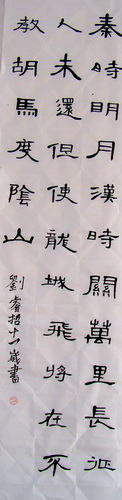 秦時明月漢時關萬里長征
人未還但使龍城飛將在不
教胡馬度陰山
劉睿哲十一歲書